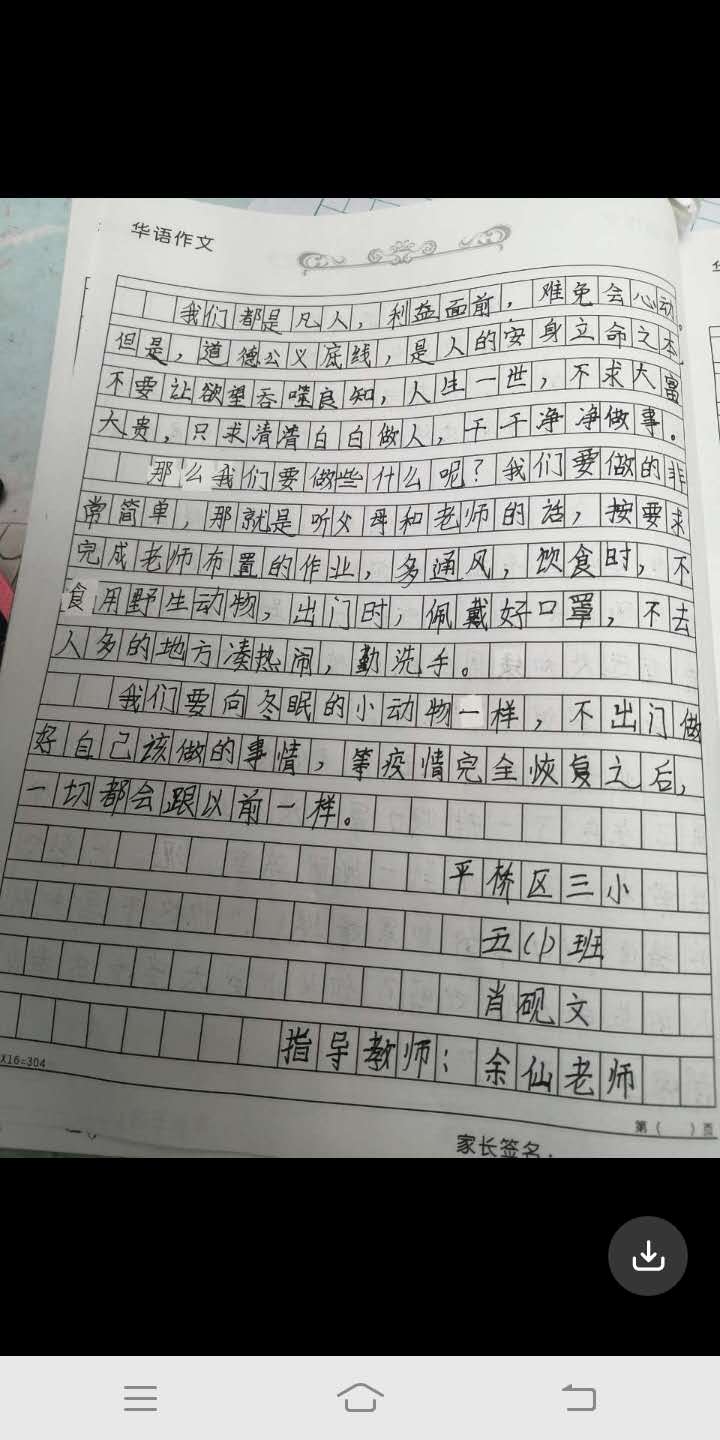 华语作文
我们都是凡人，利益面前，难免会心动。
但是，道德公义底线，是人的安身立命之本，
不要让欲望吞噬良知，人生一世，不求大富
大贵，只求清清白白做人，干干净净做事。
那么我们要做些什么呢？我们要做的非
常简单，那就是听父母和老师的话，按要求
完成老师布置的作业，多通风，饮食时，不
食用野生动物，出门时，佩戴好口罩，不去
人多的地方凑热闹，勤洗手。
我们要向冬眠的小动物一样，不出门做
好自己该做的事情，等疫情完全恢复之后，
一切都会跟以前一样。
平桥区三小
五(1)班
肖砚文
指导教师：余仙老师
X16=304
第（ ）页
家长签名：